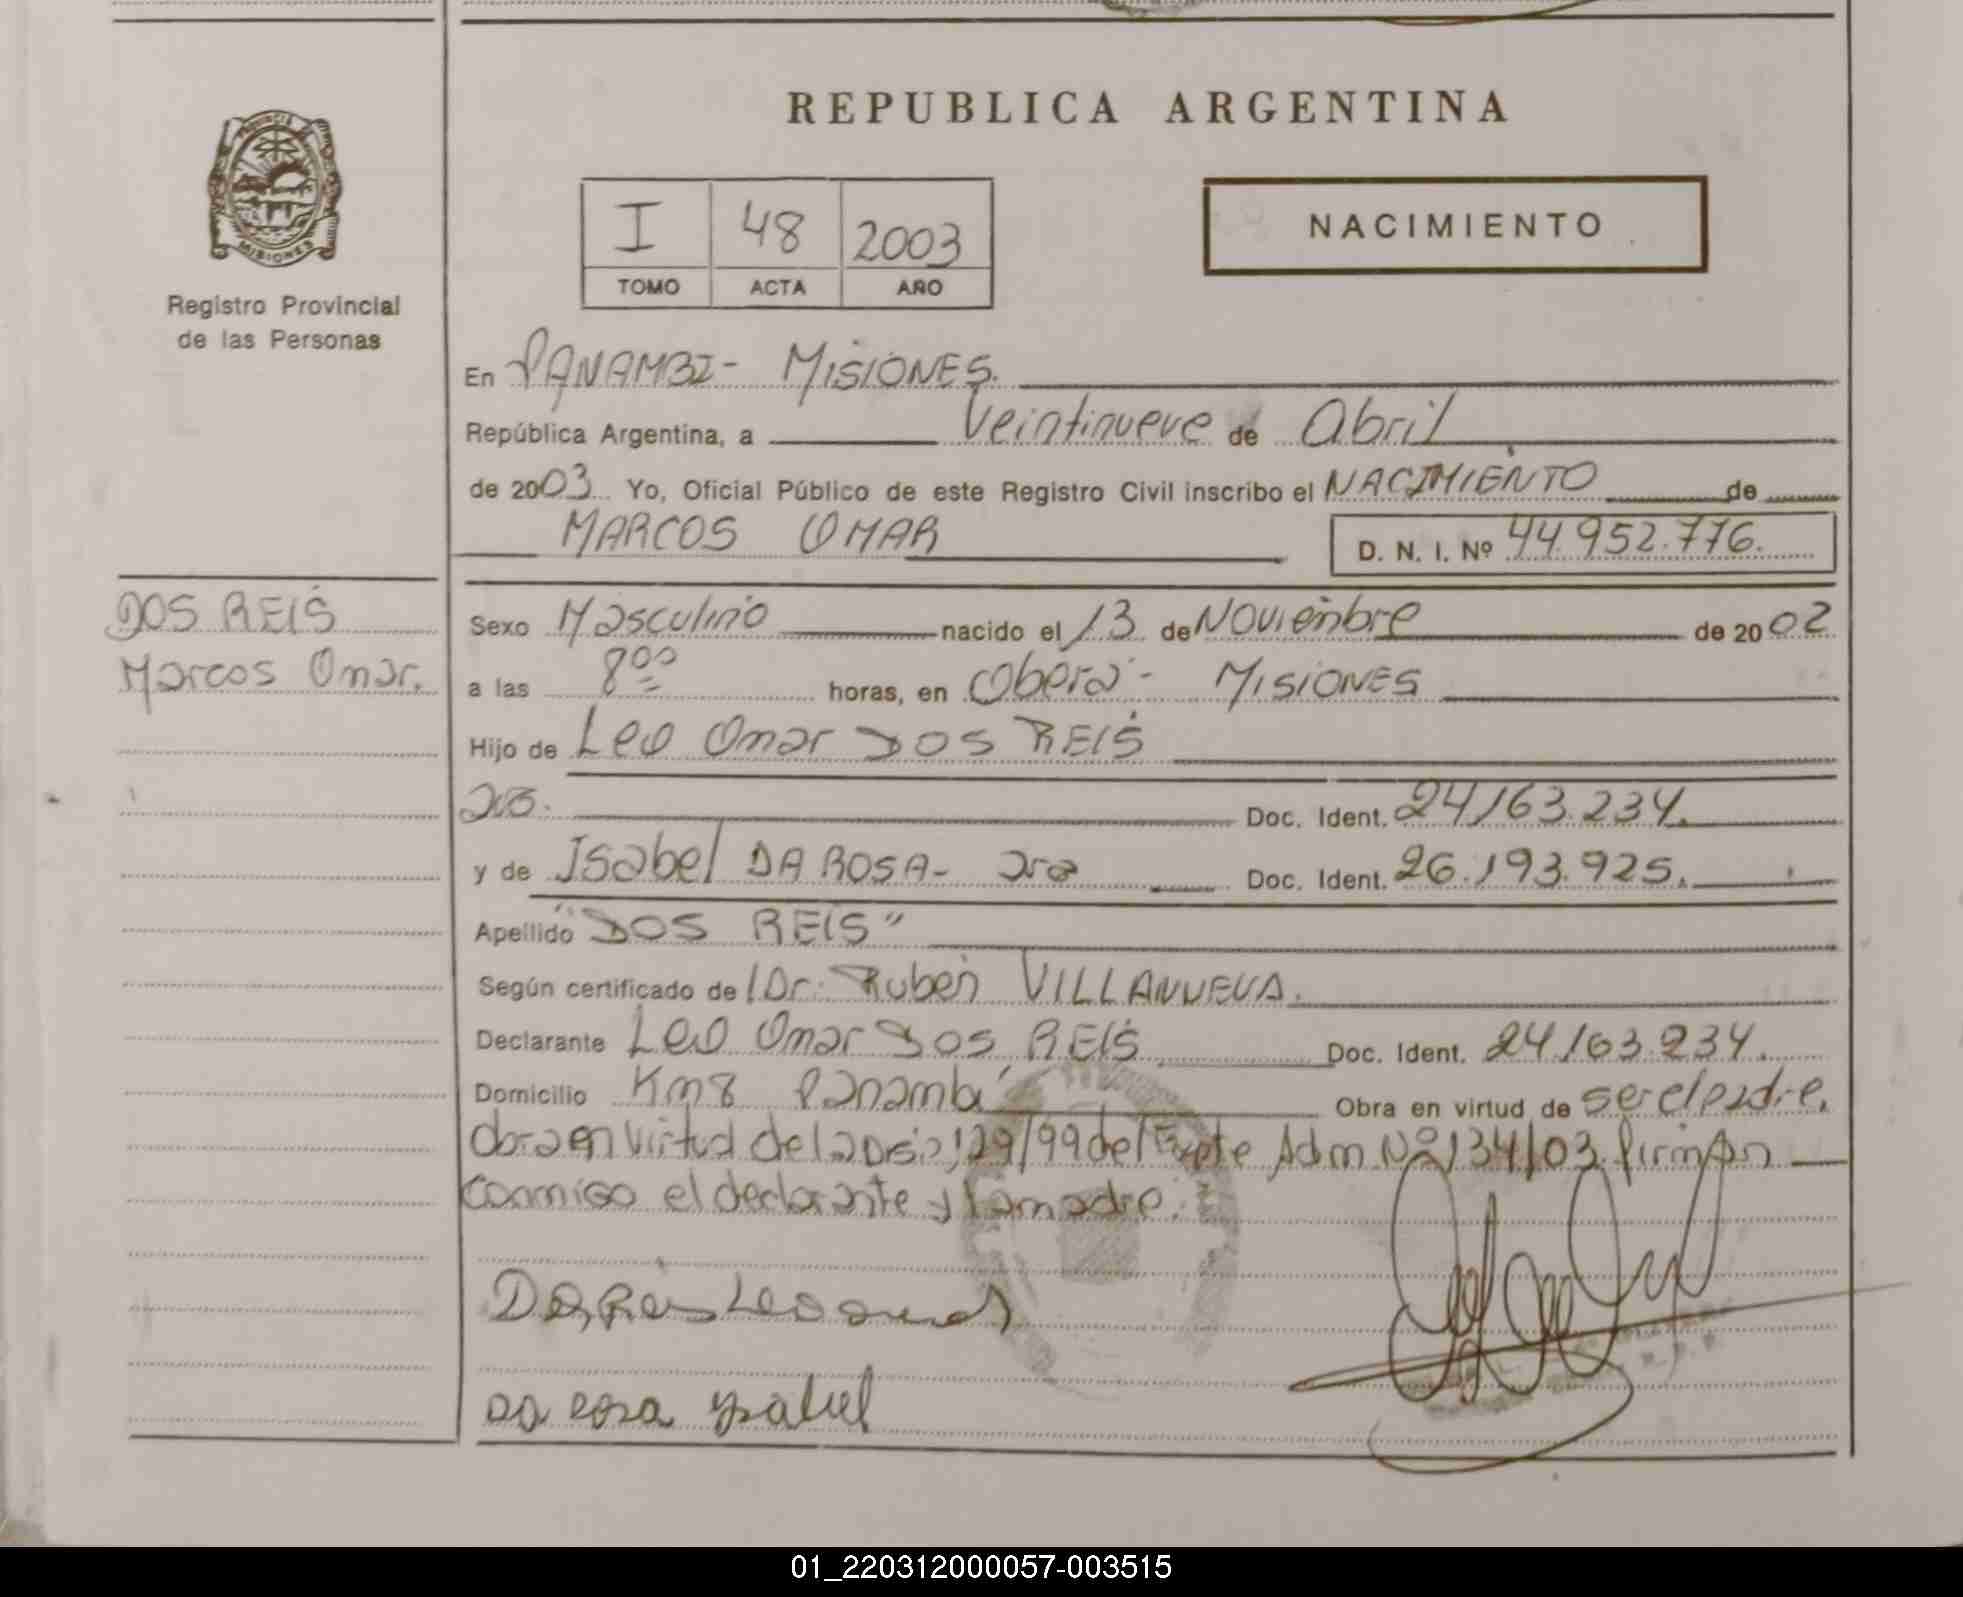 REPUBLICA ARGENTINA
PROVINCIA
MISIONES
Registro Provincial
de las Personas
I 48 2003
TOMO ACTA AÑO
NACIMIENTO
En PANAMBI - MISIONES.
República Argentina, a Veintinueve de Abril
de 2003 Yo, Oficial Público de este Registro Civil inscribo el NACIMIENTO de
MARCOS OMAR D. N. I. Nº 44.952.776.
DOS REIS
Marcos Omar.
Sexo Masculino nacido el 13 de Noviembre de 2002
a las 8 00 horas, en Oberá - MISIONES
Hijo de Leo Omar DOS REIS
Doc. Ident. 24.163.234.
y de Isabel DA ROSA - Doc. Ident. 26.193.925.
Apellido "DOS REIS"
Según certificado de l Dr. Ruben VILLANUEVA.
Declarante Leo Omar DOS REIS Doc. Ident. 24.163.234.
Domicilio Km 8 Panambí Obra en virtud de ser el padre.
Obra en virtud de la 129/99 del Expte Adm Nº 134/03. firman
conmigo el declarante y la madre.
Leo
da rosa ysabel
01_220312000057-003515